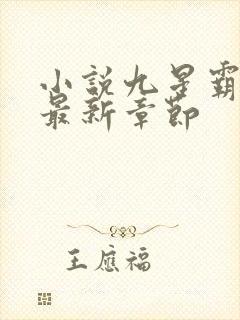 小説九星霸
最新章節
王應福